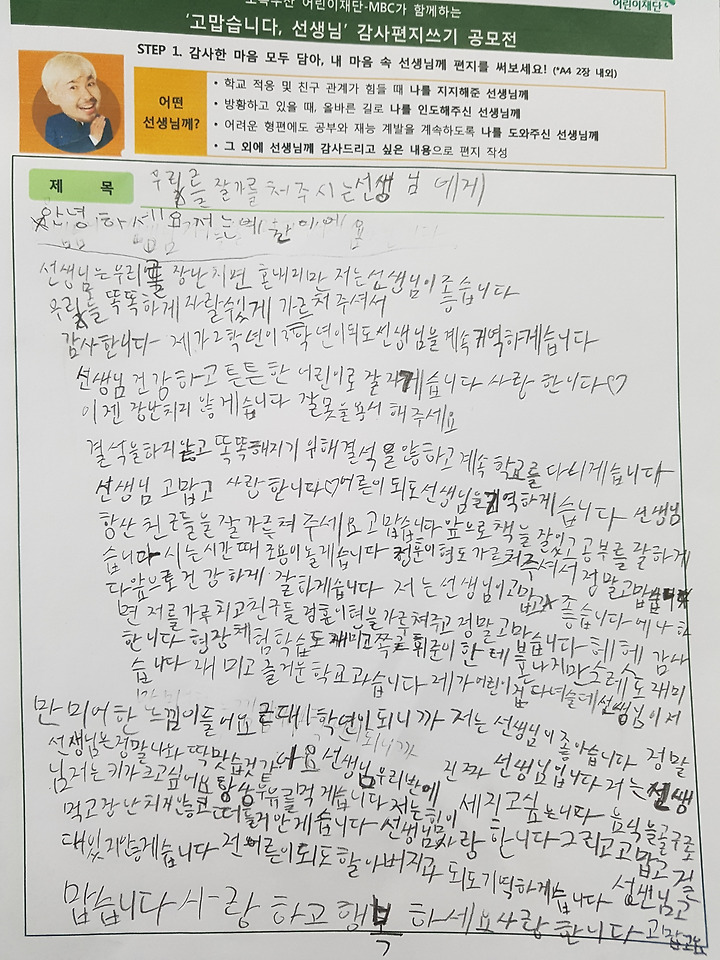 초록우산 어린이재단-MBC가 함께하는
어린이재단
'고맙습니다, 선생님' 감사편지쓰기 공모전
STEP 1. 감사한 마음 모두 담아, 내 마음 속 선생님께 편지를 써보세요! (*A4 2장 내외)
어떤
선생님께?
• 학교 적응 및 친구 관계가 힘들 때 나를 지지해준 선생님께
• 방황하고 있을 때, 올바른 길로 나를 인도해주신 선생님께
• 어려운 형편에도 공부와 재능 계발을 계속하도록 나를 도와주신 선생님께
• 그 외에 선생님께 감사드리고 싶은 내용으로 편지 작성
제 목
우리들 잘가를처주시는선생님에게
안녕하세요 저는예한이에요
선생님는우리를 장난치면 혼내지만 저는선생님이좋습니다
우리들 똑똑하게 자랄수있게 가르처주셔서
감사합니다 제가2학년이3학년이되도선생님을계속기역하게습니다
선생님건강하고튼튼한 어린이로 잘자라게습니다 사랑 한니다♡
이젠 장난치지 않게습니다 잘못을용서 해주세요
결석을하지않고 똑똑해지기 위해결석을않하고계속학교를다니게습니다
선생님 고맙고 사랑합니다♡어른이되도선생님을기역하게습니다 선생님
항상친구들을잘가르쳐 주세요고맙습니다앞으로책을잘읽고공부를잘하게
습니다 시는시간때 조용이놀게습니다 가르처주셔서정말고맙습니다
다앞으로건강하게 잘하게습니다 저는선생님이고맙고좋습니다
면저를가르치고친구들 가르쳐주고정말고마습니다 헤헤 감사
한니다 현장체험학습도재미고 휘준이한테
습니다 재미고즐거운학교과습니다 제가어린이집다녀슬데선생님이저
만미어한느낌이들어요근대1학년이되니까 저는선생님이좋아습니다 정말
선생님은정말나와딱맞습것가아요선생님우리반에 진짜 선생님입니다저는선생
님저는키가크고싶어요항상우유를먹게습니다저는힘이 세지고싶습니다 음식을골구루
먹고장난치지안흐고떠들지안게습니다 선생님사랑한니다그리고고맙고절
대잊지않을게습니다 전어른이되도할아버지과되도기먹하게습니다 성선님고
맙습니다 사랑하고행복하세요사랑한니다고맙고요